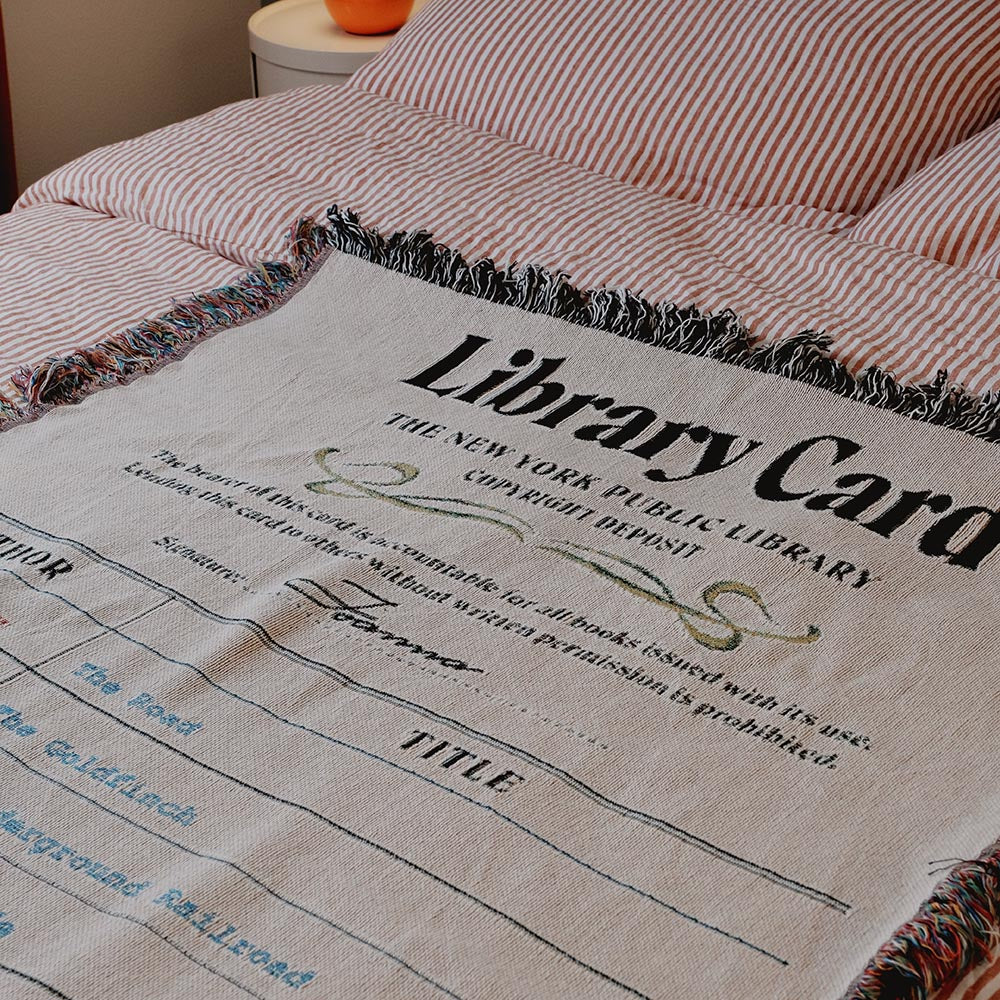 Library Card
THE NEW YORK PUBLIC LIBRARY
COPYRIGHT DEPOSIT
The bearer of this card is accountable for all books issued with its use.
Lending this card to others without written permission is prohibited.
Signature:
THOR TITLE
The Road
The Goldfinch
derground Railroad